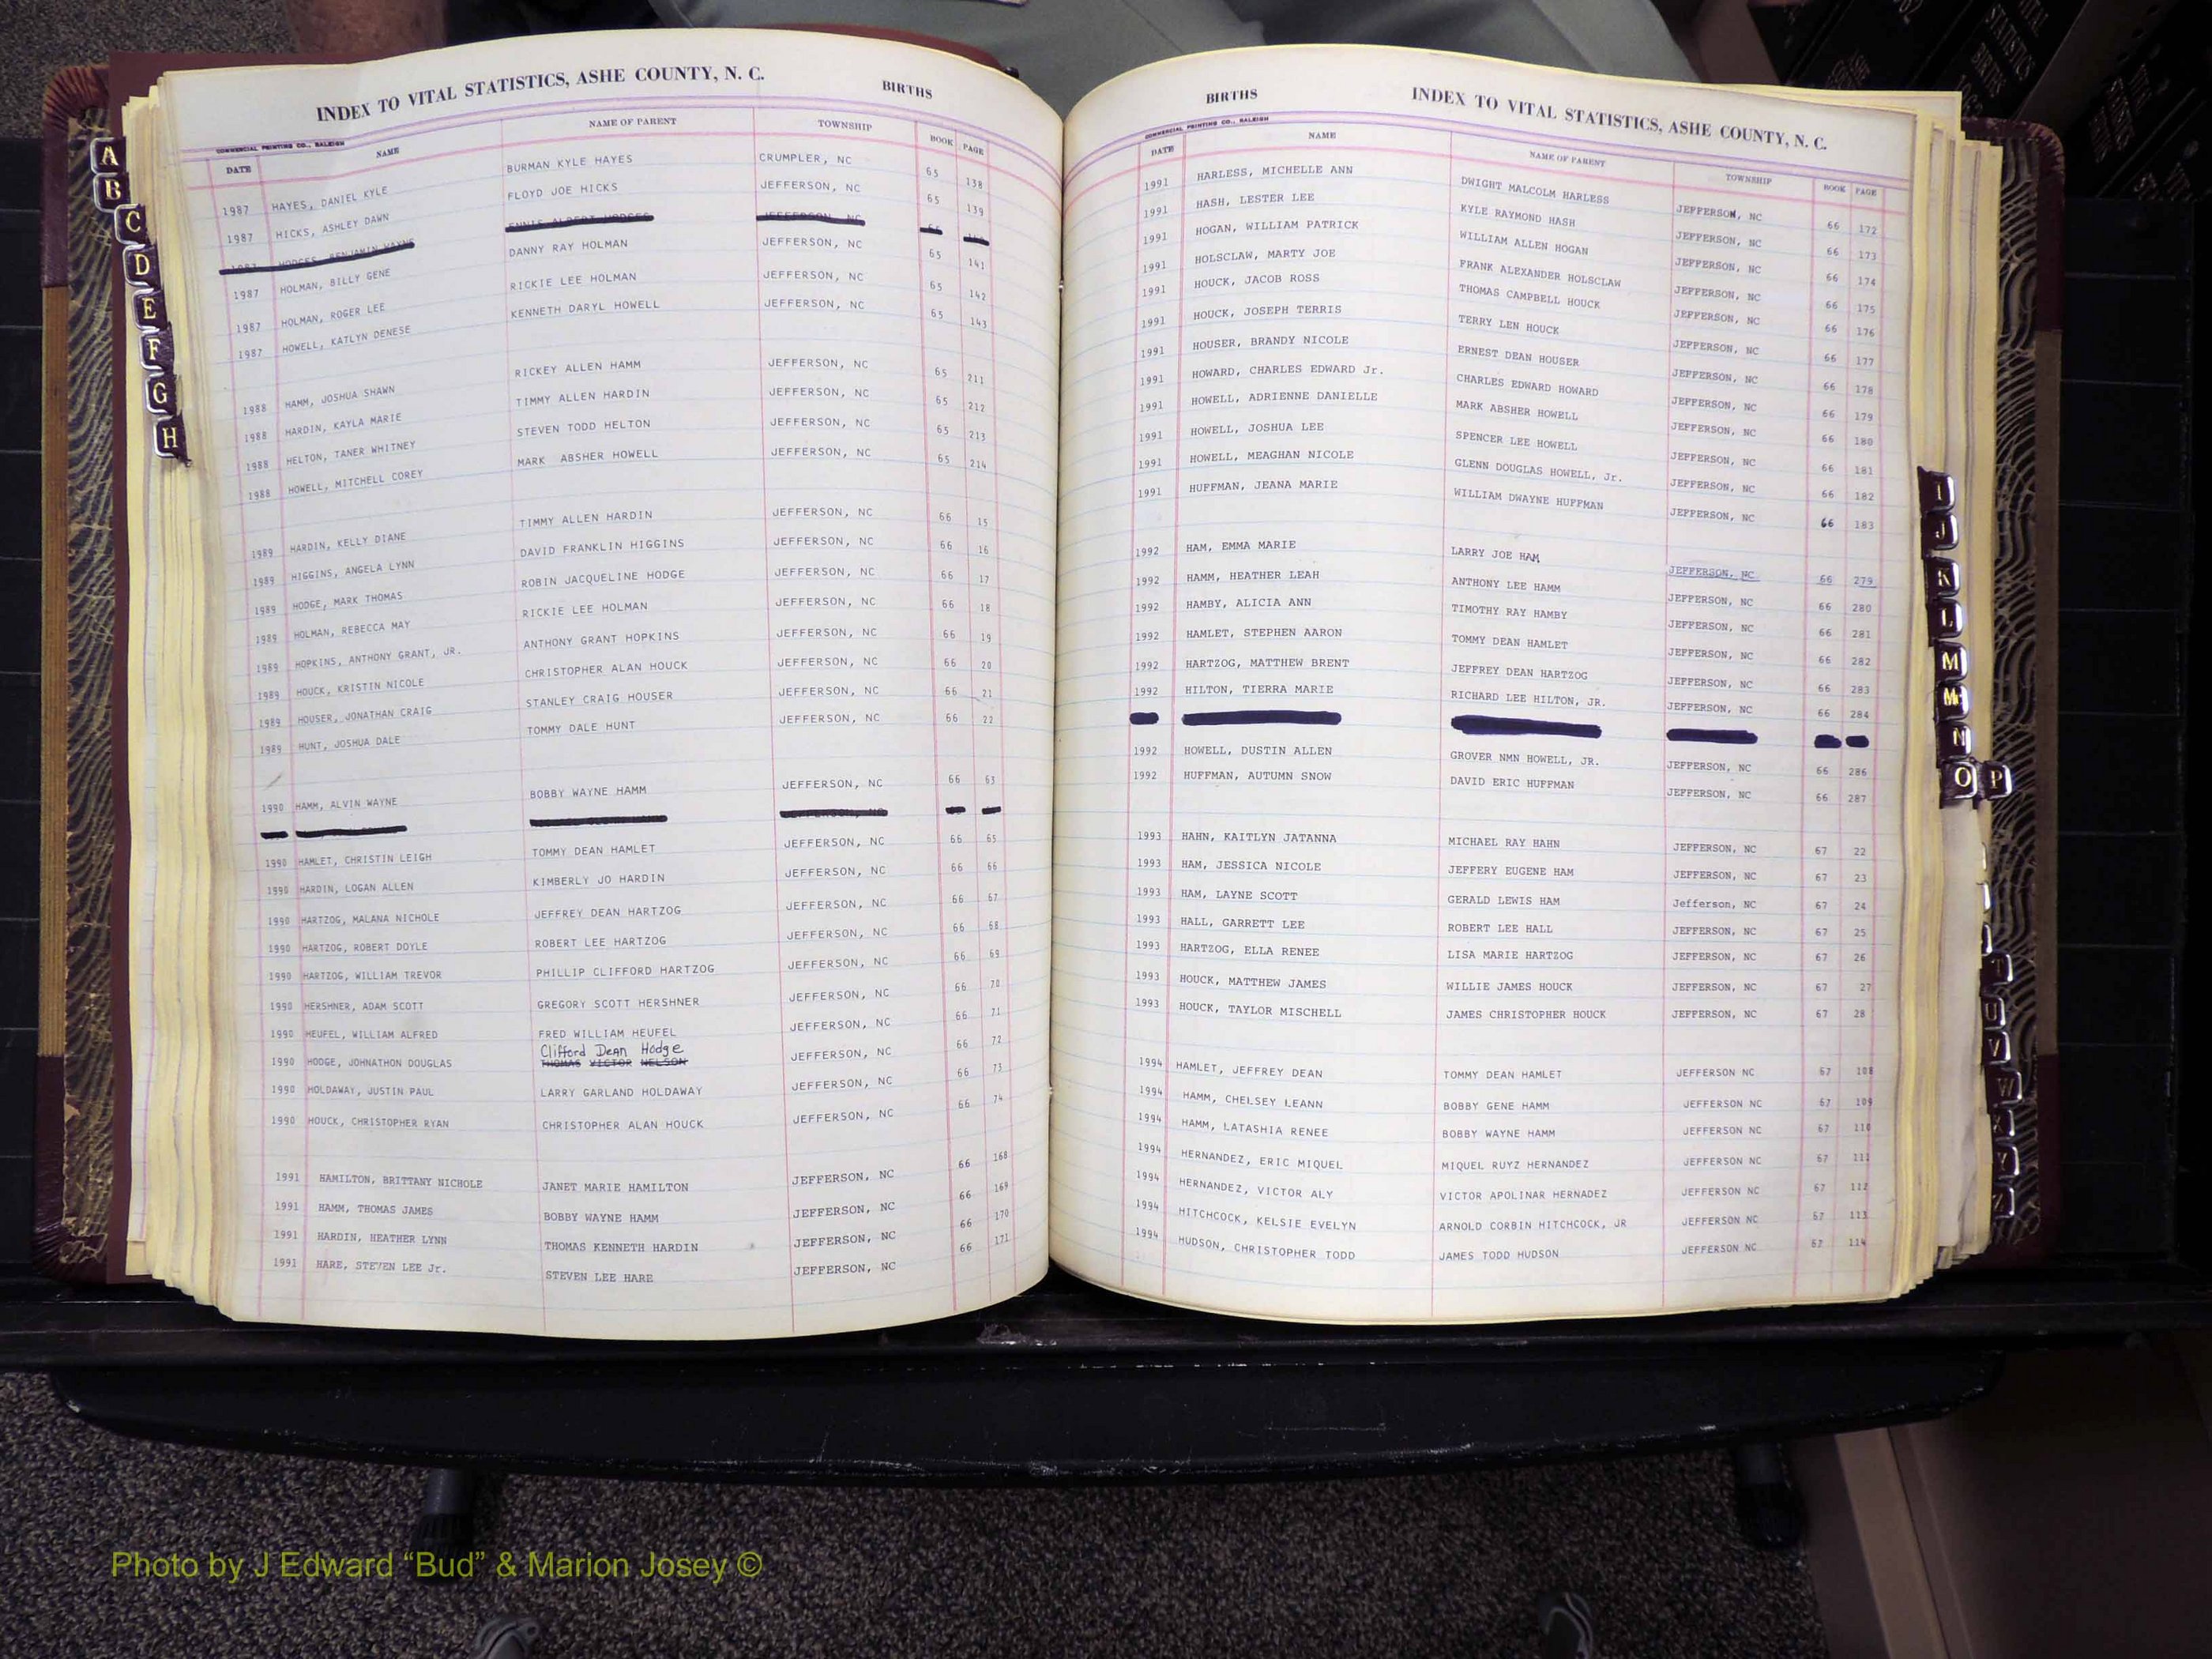 INDEX TO VITAL STATISTICS, ASHE COUNTY, N. C. BIRTHS
COMMERCIAL PRINTING CO., RALEIGH
DATE NAME NAME OF PARENT TOWNSHIP BOOK PAGE
1987 HAYES, DANIEL KYLE BURMAN KYLE HAYES CRUMPLER, NC 65 138
1987 HICKS, ASHLEY DAWN FLOYD JOE HICKS JEFFERSON, NC 65 139
1987 HOLMAN, BILLY GENE DANNY RAY HOLMAN JEFFERSON, NC 65 141
1987 HOLMAN, ROGER LEE RICKIE LEE HOLMAN JEFFERSON, NC 65 142
1987 HOWELL, KATLYN DENESE KENNETH DARYL HOWELL JEFFERSON, NC 65 143
1988 HAMM, JOSHUA SHAWN RICKEY ALLEN HAMM JEFFERSON, NC 65 211
1988 HARDIN, KAYLA MARIE TIMMY ALLEN HARDIN JEFFERSON, NC 65 212
1988 HELTON, TANER WHITNEY STEVEN TODD HELTON JEFFERSON, NC 65 213
1988 HOWELL, MITCHELL COREY MARK ABSHER HOWELL JEFFERSON, NC 65 214
1989 HARDIN, KELLY DIANE TIMMY ALLEN HARDIN JEFFERSON, NC 66 15
1989 HIGGINS, ANGELA LYNN DAVID FRANKLIN HIGGINS JEFFERSON, NC 66 16
1989 HODGE, MARK THOMAS ROBIN JACQUELINE HODGE JEFFERSON, NC 66 17
1989 HOLMAN, REBECCA MAY RICKIE LEE HOLMAN JEFFERSON, NC 66 18
1989 HOPKINS, ANTHONY GRANT, JR. ANTHONY GRANT HOPKINS JEFFERSON, NC 66 19
1989 HOUCK, KRISTIN NICOLE CHRISTOPHER ALAN HOUCK JEFFERSON, NC 66 20
1989 HOUSER, JONATHAN CRAIG STANLEY CRAIG HOUSER JEFFERSON, NC 66 21
1989 HUNT, JOSHUA DALE TOMMY DALE HUNT JEFFERSON, NC 66 22
1990 HAMM, ALVIN WAYNE BOBBY WAYNE HAMM JEFFERSON, NC 66 63
1990 HAMLET, CHRISTIN LEIGH TOMMY DEAN HAMLET JEFFERSON, NC 66 65
1990 HARDIN, LOGAN ALLEN KIMBERLY JO HARDIN JEFFERSON, NC 66 66
1990 HARTZOG, MALANA NICHOLE JEFFREY DEAN HARTZOG JEFFERSON, NC 66 67
1990 HARTZOG, ROBERT DOYLE ROBERT LEE HARTZOG JEFFERSON, NC 66 68
1990 HARTZOG, WILLIAM TREVOR PHILLIP CLIFFORD HARTZOG JEFFERSON, NC 66 69
1990 HERSHNER, ADAM SCOTT GREGORY SCOTT HERSHNER JEFFERSON, NC 66 70
1990 HEUFEL, WILLIAM ALFRED FRED WILLIAM HEUFEL JEFFERSON, NC 66 71
Clifford Dean Hodge
1990 HODGE, JOHNATHON DOUGLAS THOMAS VICTOR NELSON JEFFERSON, NC 66 72
1990 HOLDAWAY, JUSTIN PAUL LARRY GARLAND HOLDAWAY JEFFERSON, NC 66 73
1990 HOUCK, CHRISTOPHER RYAN CHRISTOPHER ALAN HOUCK JEFFERSON, NC 66 74
1991 HAMILTON, BRITTANY NICHOLE JANET MARIE HAMILTON JEFFERSON, NC 66 168
1991 HAMM, THOMAS JAMES BOBBY WAYNE HAMM JEFFERSON, NC 66 169
1991 HARDIN, HEATHER LYNN THOMAS KENNETH HARDIN JEFFERSON, NC 66 170
1991 HARE, STEVEN LEE Jr. STEVEN LEE HARE JEFFERSON, NC 66 171
BIRTHS INDEX TO VITAL STATISTICS, ASHE COUNTY, N. C.
COMMERCIAL PRINTING CO., RALEIGH
DATE NAME NAME OF PARENT TOWNSHIP BOOK PAGE
1991 HARLESS, MICHELLE ANN DWIGHT MALCOLM HARLESS JEFFERSON, NC 66 172
1991 HASH, LESTER LEE KYLE RAYMOND HASH JEFFERSON, NC 66 173
1991 HOGAN, WILLIAM PATRICK WILLIAM ALLEN HOGAN JEFFERSON, NC 66 174
1991 HOLSCLAW, MARTY JOE FRANK ALEXANDER HOLSCLAW JEFFERSON, NC 66 175
1991 HOUCK, JACOB ROSS THOMAS CAMPBELL HOUCK JEFFERSON, NC 66 176
1991 HOUCK, JOSEPH TERRIS TERRY LEN HOUCK JEFFERSON, NC 66 177
1991 HOUSER, BRANDY NICOLE ERNEST DEAN HOUSER JEFFERSON, NC 66 178
1991 HOWARD, CHARLES EDWARD Jr. CHARLES EDWARD HOWARD JEFFERSON, NC 66 179
1991 HOWELL, ADRIENNE DANIELLE MARK ABSHER HOWELL JEFFERSON, NC 66 180
1991 HOWELL, JOSHUA LEE SPENCER LEE HOWELL JEFFERSON, NC 66 181
1991 HOWELL, MEAGHAN NICOLE GLENN DOUGLAS HOWELL, Jr. JEFFERSON, NC 66 182
1991 HUFFMAN, JEANA MARIE WILLIAM DWAYNE HUFFMAN JEFFERSON, NC 66 183
1992 HAM, EMMA MARIE LARRY JOE HAM JEFFERSON, NC 66 279
1992 HAMM, HEATHER LEAH ANTHONY LEE HAMM JEFFERSON, NC 66 280
1992 HAMBY, ALICIA ANN TIMOTHY RAY HAMBY JEFFERSON, NC 66 281
1992 HAMLET, STEPHEN AARON TOMMY DEAN HAMLET JEFFERSON, NC 66 282
1992 HARTZOG, MATTHEW BRENT JEFFREY DEAN HARTZOG JEFFERSON, NC 66 283
1992 HILTON, TIERRA MARIE RICHARD LEE HILTON, JR. JEFFERSON, NC 66 284
1992 HOWELL, DUSTIN ALLEN GROVER NMN HOWELL, JR. JEFFERSON, NC 66 286
1992 HUFFMAN, AUTUMN SNOW DAVID ERIC HUFFMAN JEFFERSON, NC 66 287
1993 HAHN, KAITLYN JATANNA MICHAEL RAY HAHN JEFFERSON, NC 67 22
1993 HAM, JESSICA NICOLE JEFFERY EUGENE HAM JEFFERSON, NC 67 23
1993 HAM, LAYNE SCOTT GERALD LEWIS HAM Jefferson, NC 67 24
1993 HALL, GARRETT LEE ROBERT LEE HALL JEFFERSON, NC 67 25
1993 HARTZOG, ELLA RENEE LISA MARIE HARTZOG JEFFERSON, NC 67 26
1993 HOUCK, MATTHEW JAMES WILLIE JAMES HOUCK JEFFERSON, NC 67 27
1993 HOUCK, TAYLOR MISCHELL JAMES CHRISTOPHER HOUCK JEFFERSON, NC 67 28
1994 HAMLET, JEFFREY DEAN TOMMY DEAN HAMLET JEFFERSON NC 67 108
1994 HAMM, CHELSEY LEANN BOBBY GENE HAMM JEFFERSON NC 67 109
1994 HAMM, LATASHIA RENEE BOBBY WAYNE HAMM JEFFERSON NC 67 110
1994 HERNANDEZ, ERIC MIQUEL MIQUEL RUYZ HERNANDEZ JEFFERSON NC 67 111
1994 HERNANDEZ, VICTOR ALY VICTOR APOLINAR HERNADEZ JEFFERSON NC 67 112
1994 HITCHCOCK, KELSIE EVELYN ARNOLD CORBIN HITCHCOCK, JR JEFFERSON NC 67 113
1994 HUDSON, CHRISTOPHER TODD JAMES TODD HUDSON JEFFERSON NC 67 114
A
B
C
D
E
F
G
H
I
J
K
L
M
Mc
N
O P
T
U
V
W
Photo by J Edward “Bud” & Marion Josey ©